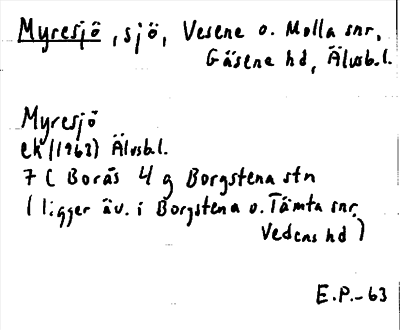 Myresjö, sjö, Vesene o. Molla snr,
Gäsene hd, Älvsb.l.
Myresjö
ek (1963) Älvsb.l.
7 C Borås 4 g Borgstena stn
(ligger äv. i Borgstena o. Tämta snr,
Vedens hd)
E.P.-63